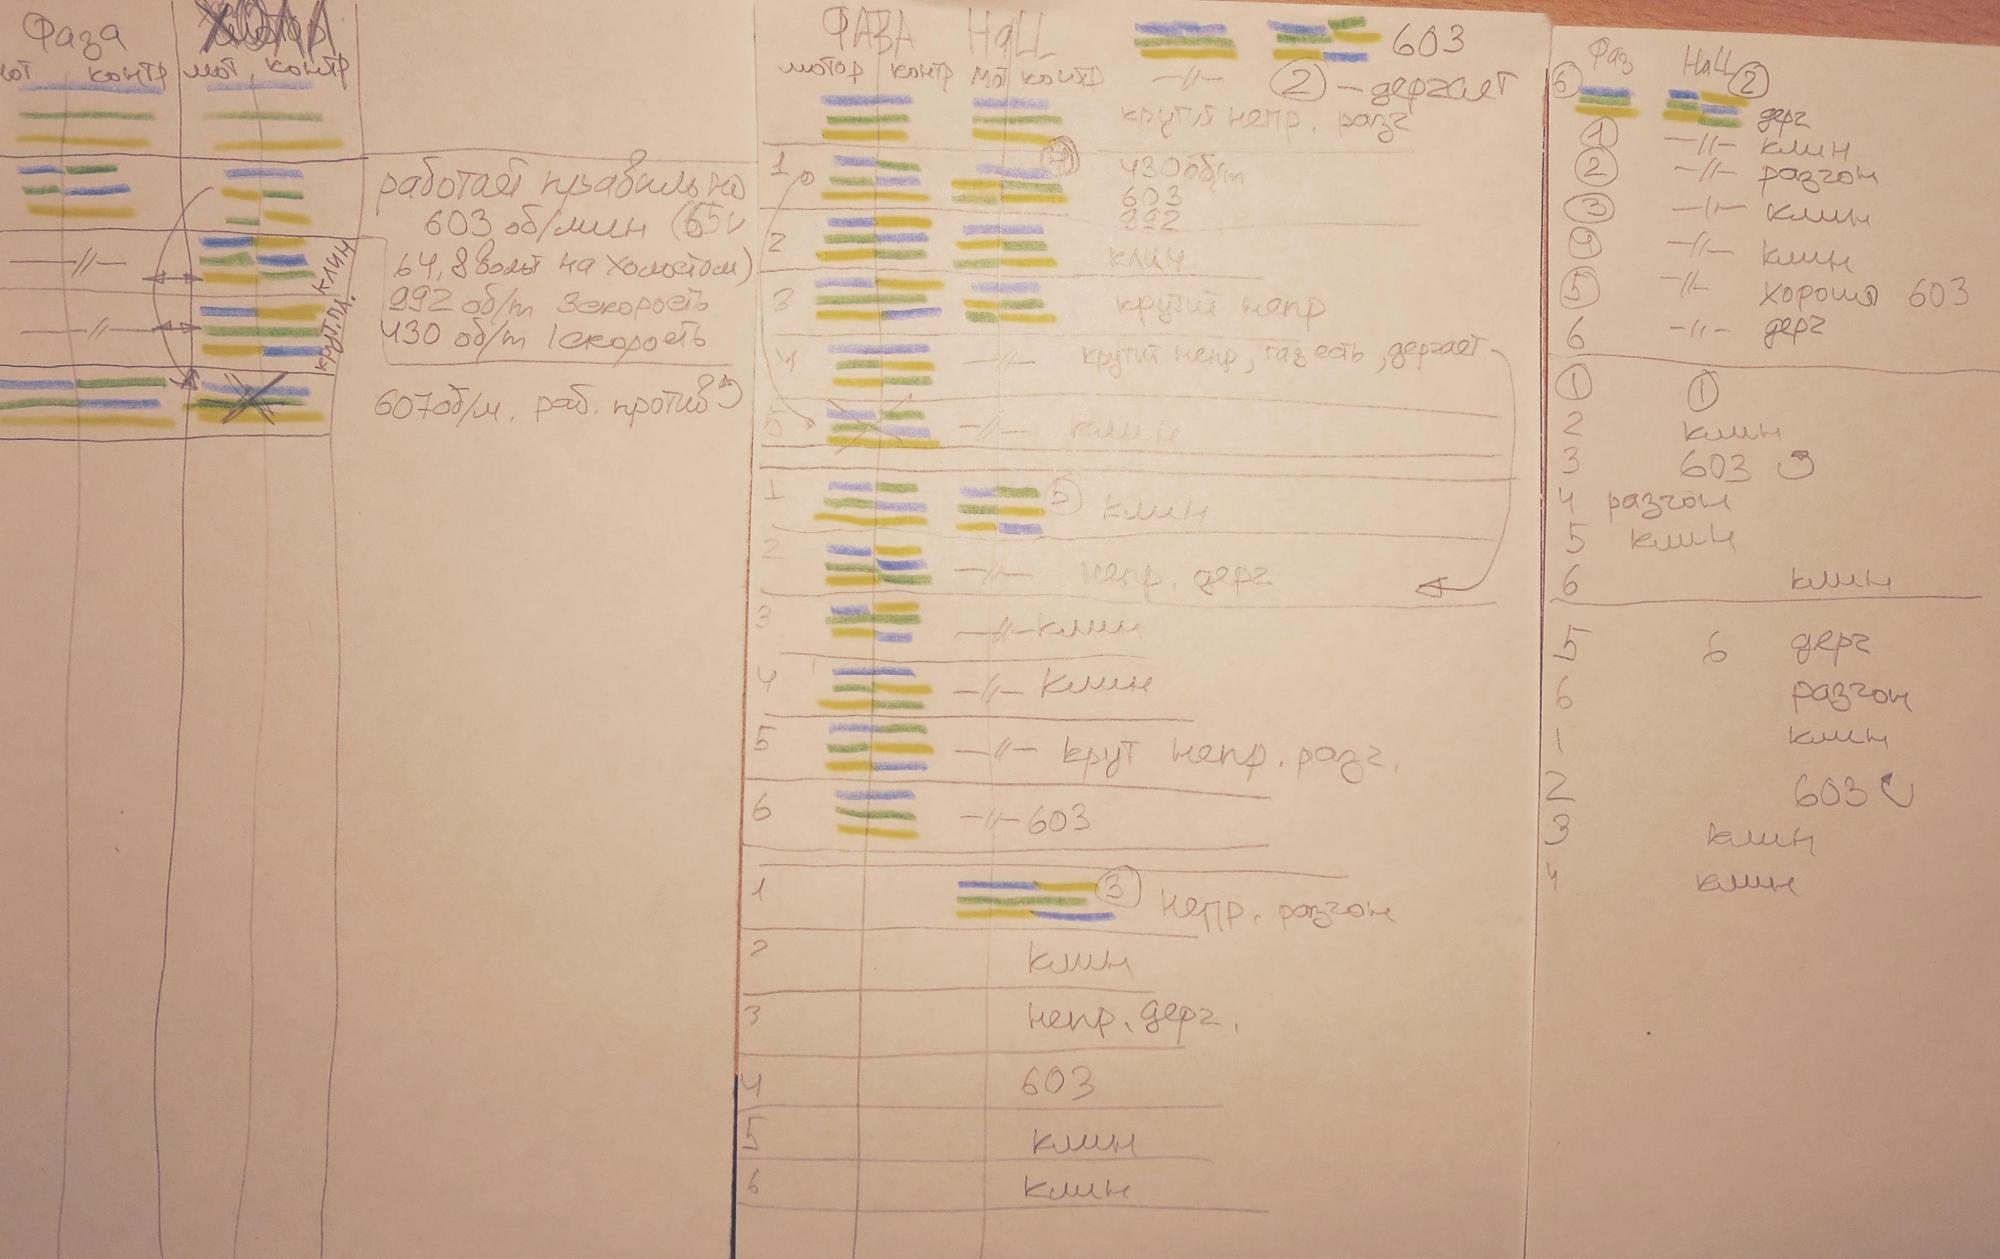 Фаза
контр
мот контр
работает правильно
603 об/мин (65v
64,8 вольт на холостом)
992 об/m 3скорость
430 об/m 1скорость
607об/м. раб. против
—//—
клин
—//—
ФАЗА НаЦ
мотор контр мот контр
603
—//— 2 – дергает
крутит непр. разг
1 430об/m
603
992
2 клин
3 крутит непр
4 —//— крутит непр, газ есть, дергает
5 —//— клин
1 5 клин
2 —//— непр. дерг
3 —//— клин
4 —//— клин
5 —//— крут непр. разг.
6 —//— 603
1 3 непр. разгон
2 клин
3 непр. дерг.
4 603
5 клин
6 клин
Фаз НаЦ
6 2
дерг
1 —//— клин
2 —//— разгон
3 —//— клин
—//— клин
5 —//— хорошо 603
6 —//— дерг
1 1
2 клин
3 603
4 разгон
5 клин
6 клин
5 6 дерг
6 разгон
1 клин
2 603
3 клин
4 клин